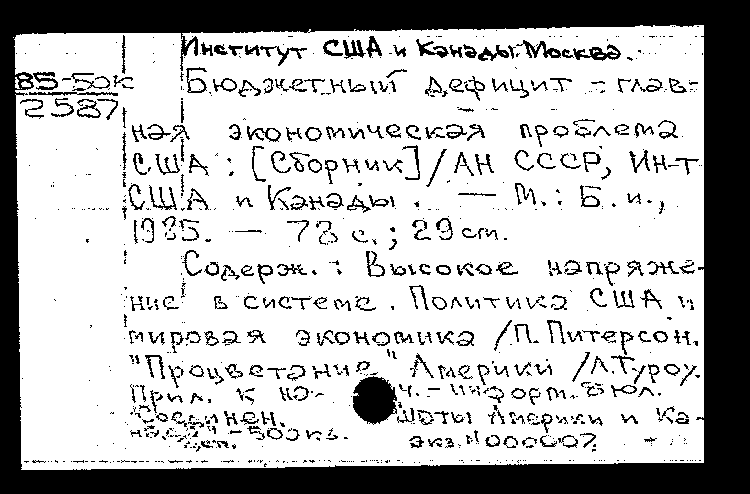 Институт США и Канады. Москва.
85-50к
2587
Бюджетный дефицит - глав-
ная экономическая проблема
США : [Сборник] / АН СССР, Ин-т
США и Канады. — М. : Б. и.,
1985. — 78 с. ; 29 см.
Содерж. : Высокое напряже-
ние в системе. Политика США и
мировая экономика / П. Питерсон.
"Процветание" Америки / Л. Туроу.
Прил. к на- ч.-информ. бюл.
"Соединен. Штаты Америки и Ка-
нада" - 500 экз.
экз. N 000007.